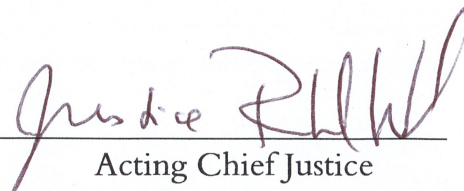 Justice
Acting Chief Justice